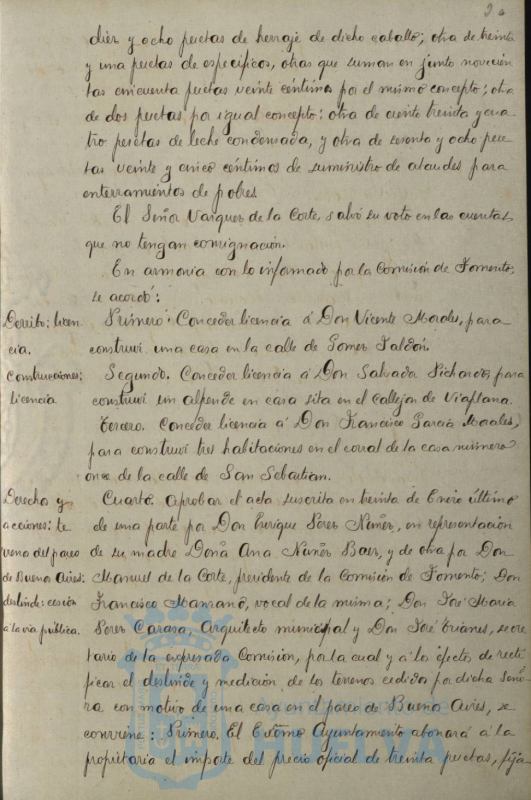 diez y ocho pesetas de herraje de dicho caballo; otra de treinta
y una pesetas de específicos, otras que suman en junto novecien
tas cincuenta pesetas veinte céntimos por el mismo concepto; otra
de dos pesetas por igual concepto; otra de ciento treinta y cua
tro pesetas de leche condensada, y otra de sesenta y ocho pese
tas veinte y cinco céntimos de suministro de ataudes para
enterramientos de pobres.
El Señor Vazquez de la Corte, salvó su voto en las cuentas
que no tengan consignación.
En armonia con lo informado por la Comisión de Fomento,
se acordó:
Derribo; licen
cia.
Primero: Conceder licencia á Don Vicente Morales, para
construir una casa en la calle de
Construcciones;
licencia.
Segundo. Conceder licencia á Don Salvador Pichardo, para
construir un alpende en casa sita en el Callejon de Viaplana.
Tercero. Conceder licencia á Don Francisco Garcia Morales,
para construir tres habitaciones en el corral de la casa número
once de la calle de San Sebastian.
Derechos y
acciones: te
rreno del paseo
de Buenos Aires;
deslinde: cesión
á la vía pública.
Cuarto. Aprobar el acta suscrita en treinta de Enero último
de una parte por Don Enrique Perez Nuñez, en representación
de su madre Doña Ana Nuñez Baez, y de otra por Don
Manuel de la Corte, presidente de la Comisión de Fomento; Don
Francisco Manzano, vocal de la misma; Don José Maria
Perez Carasa, Arquitecto municipal y Don José Trianes, secre
tario de la expresada Comisión, por la cual y á los efectos de recti
ficar el deslinde y medición de los terrenos cedidos por dicha Seño
ra con motivo de una casa en el paseo de Buenos Aires, se
conviene: Primero. El Excmo Ayuntamiento abonará á la
propietaria el importe del precio oficial de treinta pesetas, fija
HUELVA